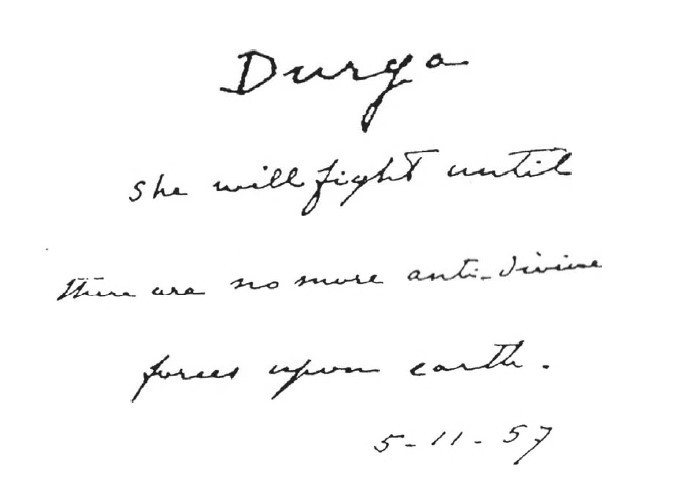 Durga
she will fight until
there are no more anti-divine
forces upon earth.
5-11-57